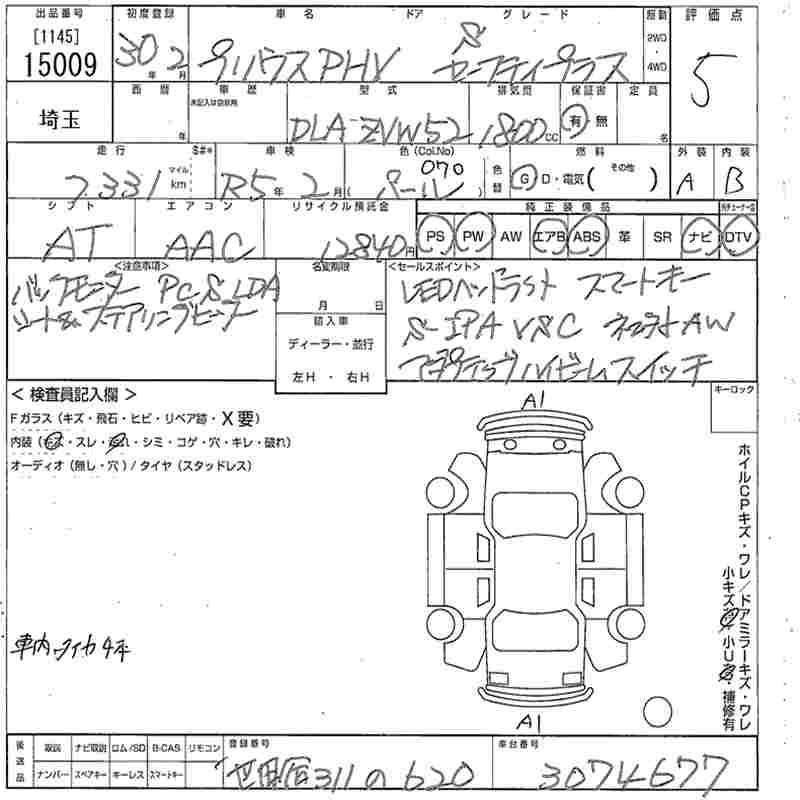 出品番号 初度登録 車名 ドア グレード 駆動 評価点
[1145] 15009 30年2月 プリウスPHV S セーフティプラス 2WD・4WD 5
埼玉 西暦 車歴 型式 排気量 保証書 定員
年 未記入は自家用 DLA-ZVW52 1800cc 有・無 名
走行 S#* 車検 色(Col.No) 色替 燃料 外装 内装
7331 マイル km R5年2月( パール 070 ) G D・電気( その他 ) A B
シフト エアコン リサイクル預託金 純正装備品
AT AAC 12840円 PS PW AW エアB ABS 革 SR ナビ DTV
<注意事項> 名変期限 <セールスポイント>
バックモニター PCS LDA 月 日 LEDヘッドライト スマートキー
シート&ステアリングヒーター 輸入車 S-IPA VSC AW
ディーラー・並行 アダプティブハイビーム スイッチ
左H・右H
<検査員記入欄> キーロック
Fガラス(キズ・飛石・ヒビ・リペア跡・X要) A1
内装(キズ・スレ・汚れ・シミ・コゲ・穴・キレ・破れ)
オーディオ(無し・穴)/タイヤ(スタッドレス)
ホイルCPキズ・ワレ/ドアミラーキズ・ワレ
小キズ 小U・補修有
車内タイヤ4本
A1
後送品 取説 ナビ取説 ロム/SD B-CAS リモコン 登録番号 車台番号
ナンバー スペアキー キーレス スマートキー 世田谷311の620 3074677